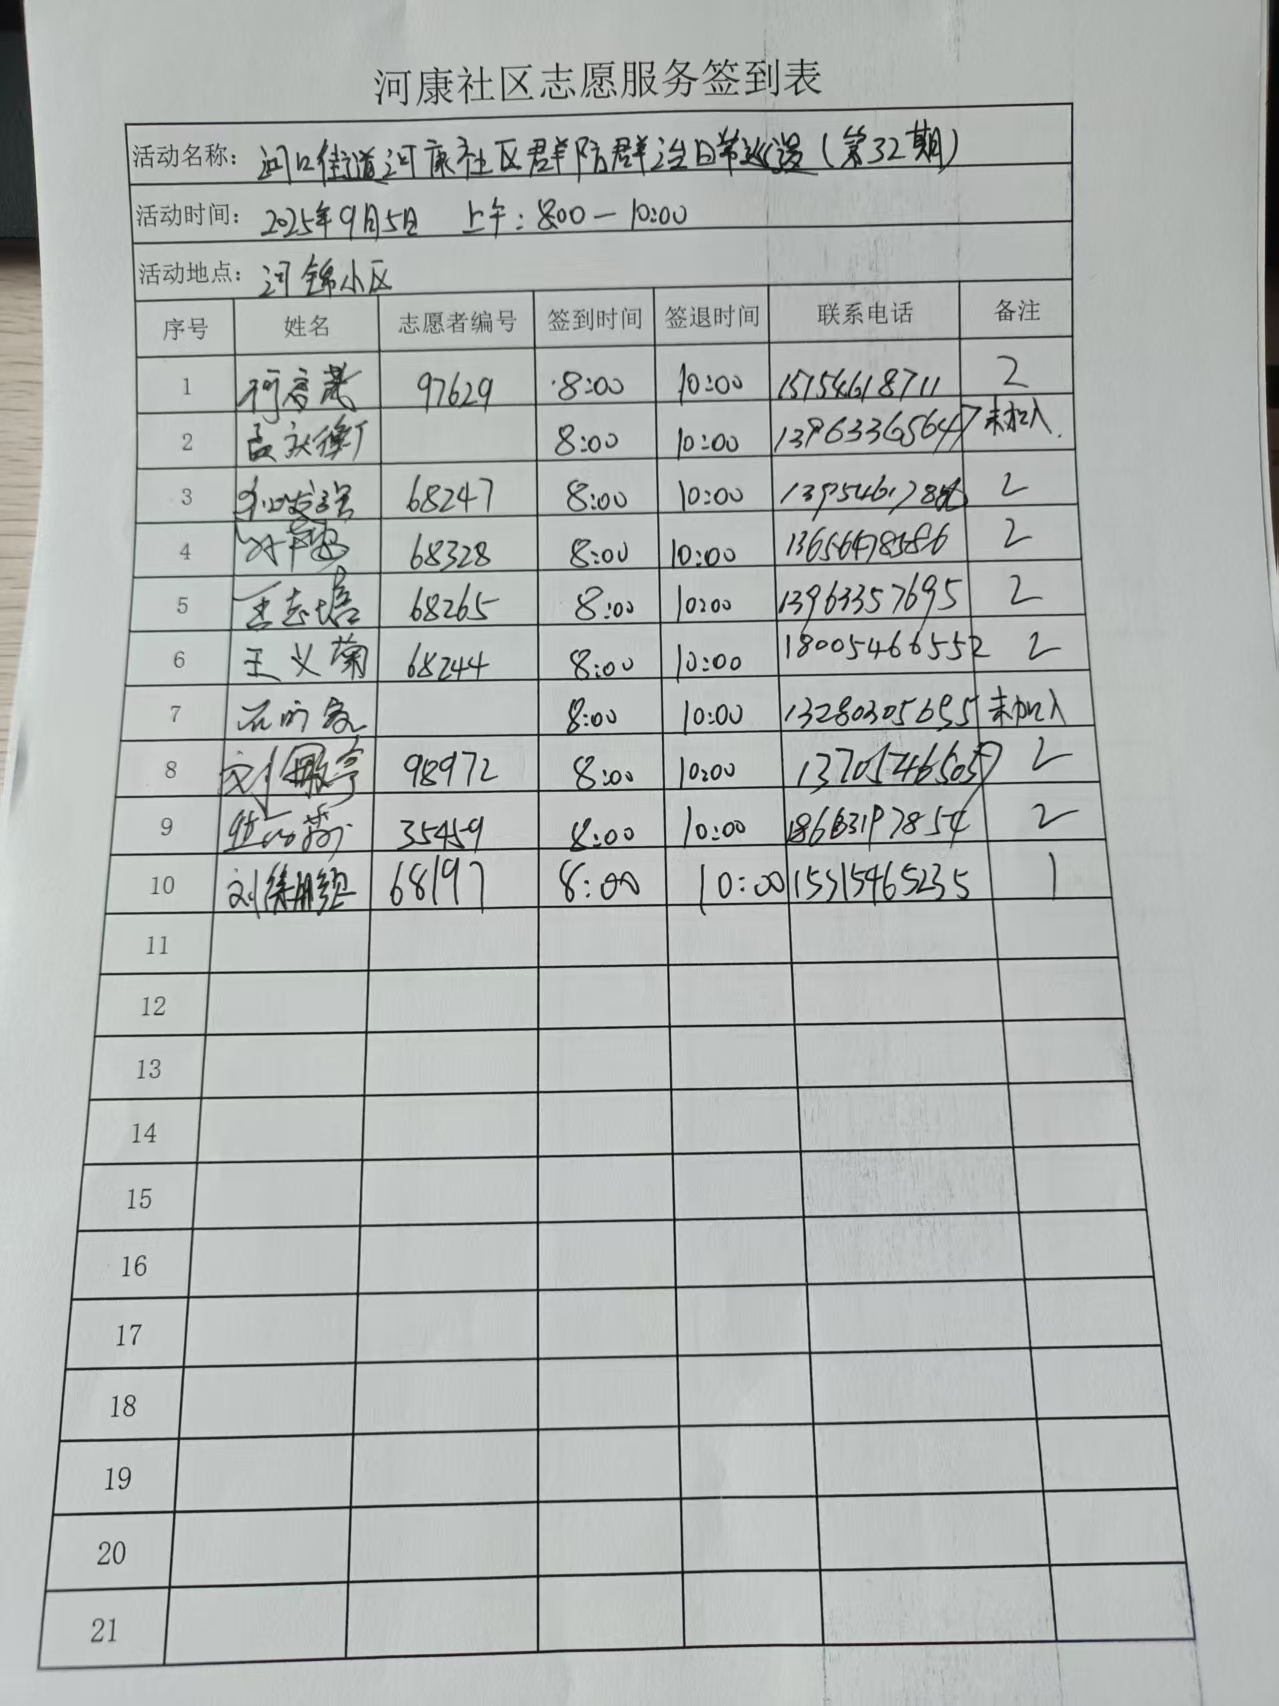 河康社区志愿服务签到表
活动名称：河口街道河康社区群防群治日常巡逻（第32期）
活动时间：2025年9月5日 上午：8:00—10:00
活动地点：河锦小区
序号 姓名 志愿者编号 签到时间 签退时间 联系电话 备注
1 97629 8:00 10:00 15154618711 2
2 8:00 10:00 13963365647 未加入
3 68247 8:00 10:00 2
4 68328 8:00 10:00 2
5 68265 8:00 10:00 13963357695 2
6 王义菊 68244 8:00 10:00 18005466552 2
7 8:00 10:00 13280305695 未加入
8 98972 8:00 10:00 2
9 35459 8:00 10:00 18663197854 2
10 68197 8:00 10:00 15315465235 1
11
12
13
14
15
16
17
18
19
20
21